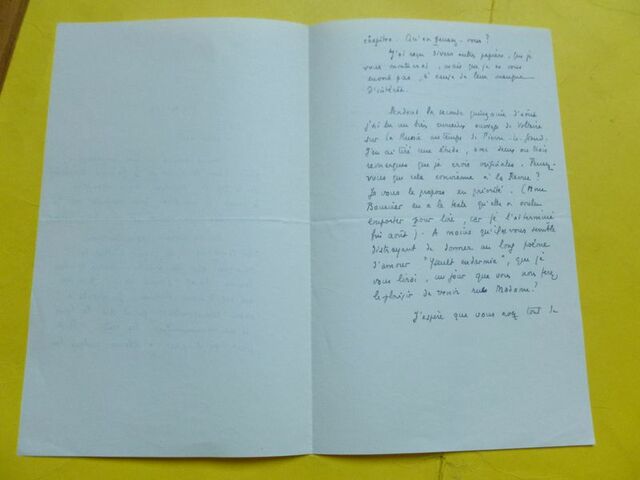 chapitre. Qu'en pensez-vous ?
J'ai reçu divers autres papiers. Que je
vous montrerai, mais que je ne vous
envoie pas, à cause de leur manque
d'intérêt.
Pendant la seconde quinzaine d'août
j'ai lu un très curieux ouvrage de Voltaire
sur la Russie au temps de Pierre-le-Grand.
J'en ai tiré une étude, avec deux ou trois
remarques que je crois originales. Pensez-
vous que cela convienne à la Revue ?
Je vous le propose en priorité. (Mme
Bouvier en a le texte qu'elle a voulu
emporter pour lire, car je l'ai terminé
fin août). A moins qu'il vous semble
distrayant de donner un long poème
d'amour "Yseult endormie", que je
vous lirai, un jour que vous nous ferez
le plaisir de venir rue Madame ?
J'espère que vous avez tout de